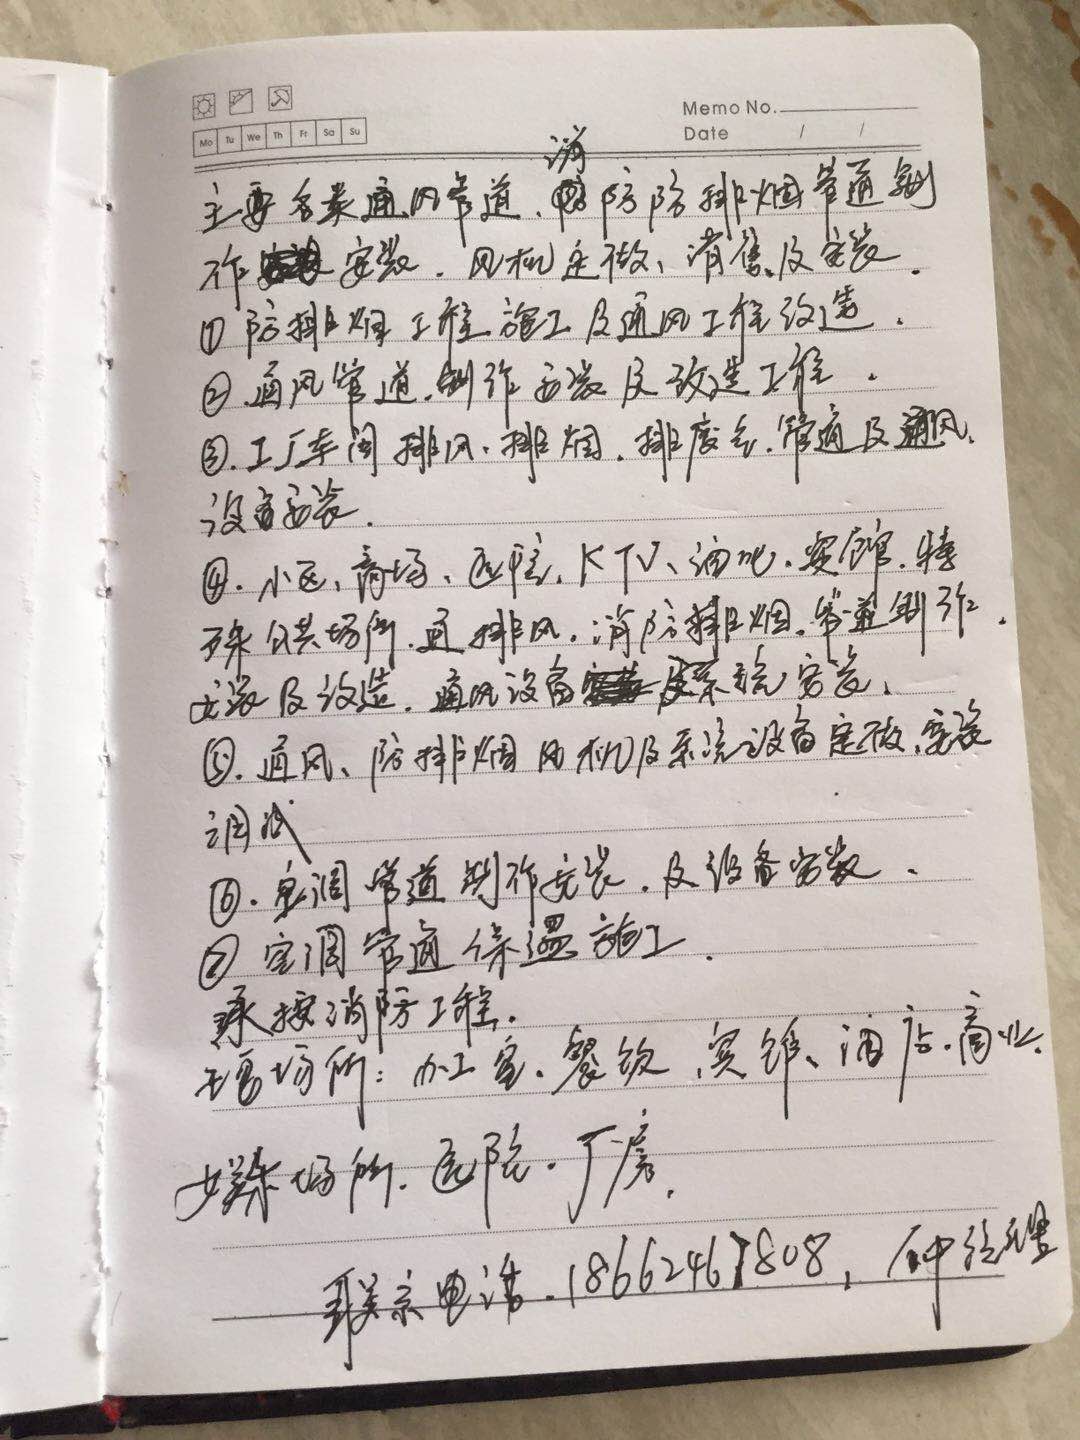 Memo No.
Date / /
Mo Tu We Th Fr Sa Su
消
主要各类通风管道、防防排烟管道制
作安装．风机定做、消售、及安装．
①防排烟工程施工及通风工程改造．
②．通风管道．制作安装及改造工程．
③．工厂车间排风．排烟．排废气．管道及通风．
设备安装．
④．小区、商场、医院、KTV、酒吧．宾馆．特
殊公共场所．通排风．消防排烟．管道制作．
安装及改造．通风设备及系统安装、
⑤．通风、防排烟风机及系统设备定做、安装
调试
⑥．空调管道制作安装．及设备安装．
⑦空调管道保温施工．
承接消防工程．
场所：办工室、餐饮、宾馆、酒店．商业．
娱乐场所．医院．厂房．
联系电话．18662467808，钟经理